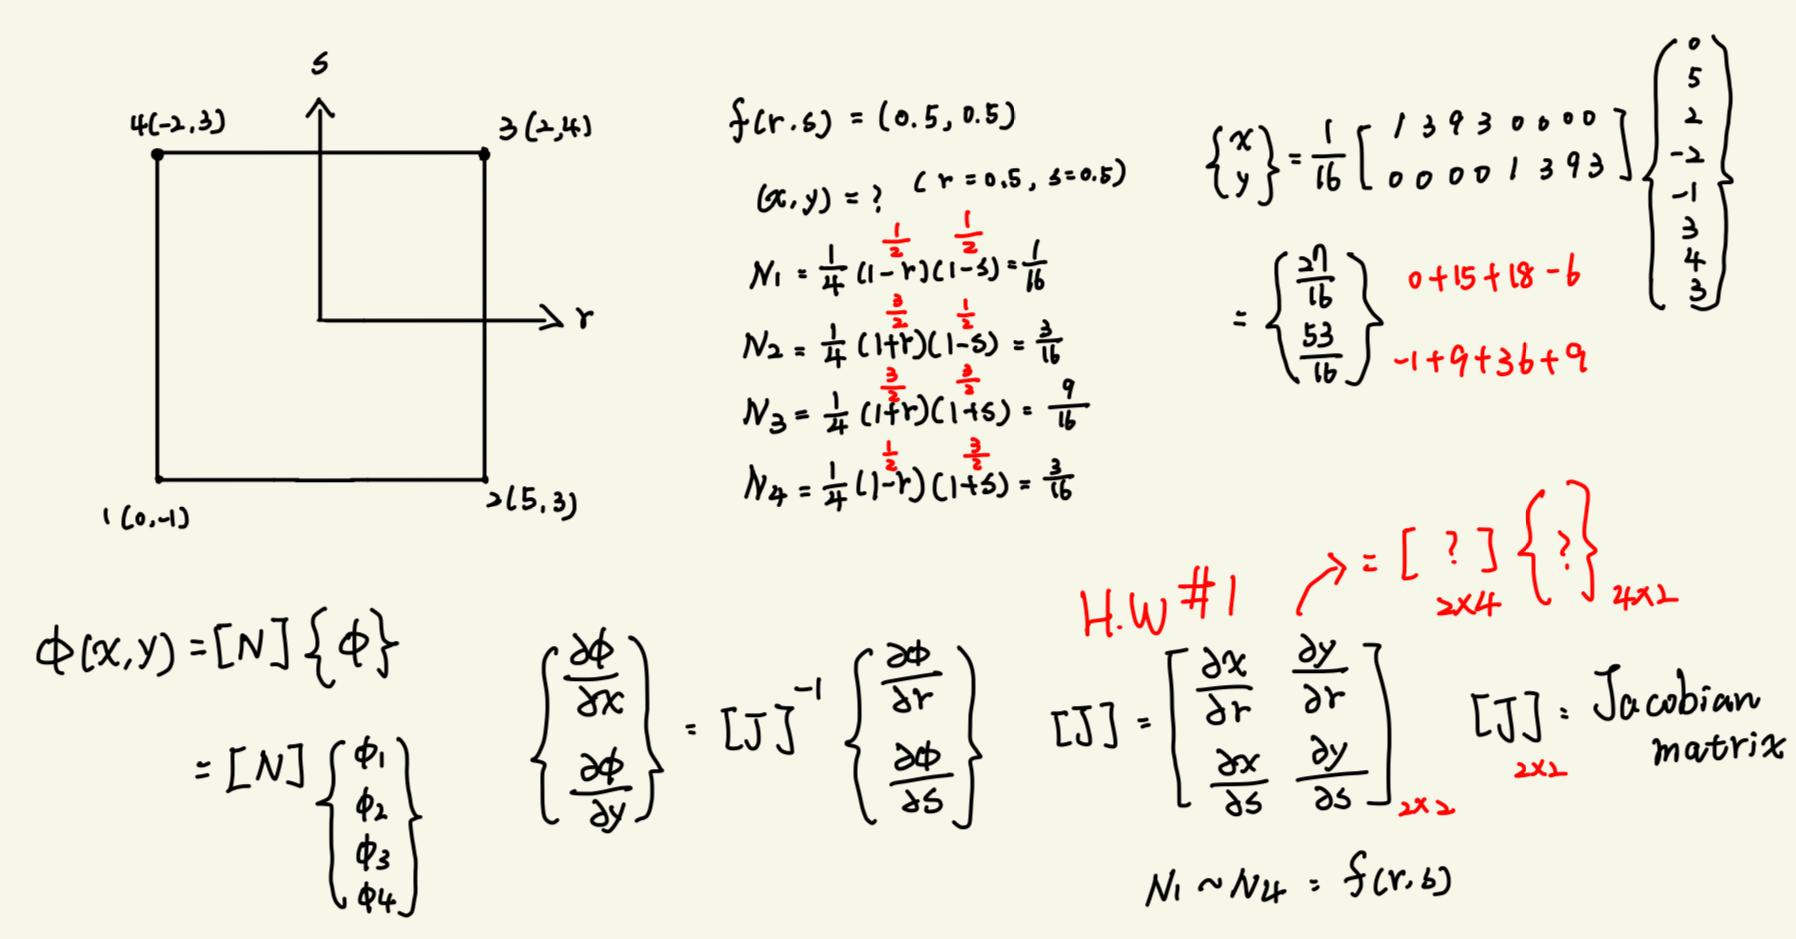 s
4(-2,3)
3(2,4)
r
1(0,-1)
2(5,3)
f(r.s) = (0.5, 0.5)
(x,y) = ? (r=0.5, s=0.5)
1/2 1/2
N1 = 1/4 (1-r)(1-s) = 1/16
3/2 1/2
N2 = 1/4 (1+r)(1-s) = 3/16
3/2 3/2
N3 = 1/4 (1+r)(1+s) = 9/16
1/2 3/2
N4 = 1/4 (1-r)(1+s) = 3/16
{x y} = 1/16 [1 3 9 3 0 0 0 0
0 0 0 0 1 3 9 3] {0 5 2 -2 -1 3 4 3}
= {27/16 53/16}
0+15+18-6
-1+9+36+9
H.W #1
= [ ? ] 2×4 { ? } 4×2
ϕ(x,y) = [N] {ϕ}
= [N] {ϕ1 ϕ2 ϕ3 ϕ4}
{∂ϕ/∂x ∂ϕ/∂y} = [J]^-1 {∂ϕ/∂r ∂ϕ/∂s}
[J] = [∂x/∂r ∂y/∂r
∂x/∂s ∂y/∂s] 2×2
[J] 2×2 = Jacobian
matrix
N1 ~ N4 = f(r.s)